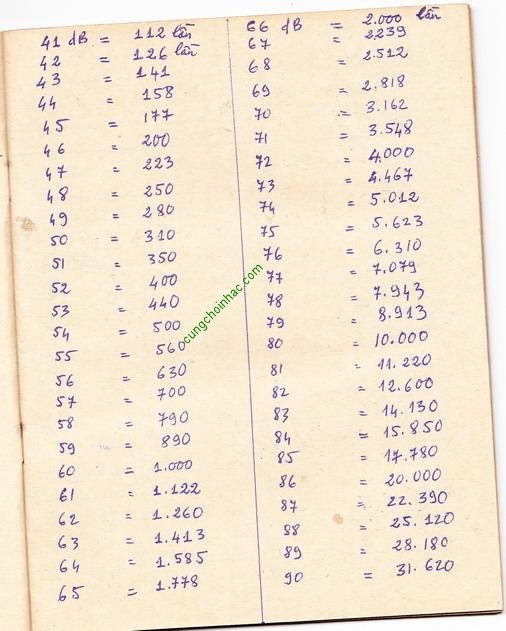 41 dB = 112 lần
42 = 126 lần
43 = 141
44 = 158
45 = 177
46 = 200
47 = 223
48 = 250
49 = 280
50 = 310
51 = 350
52 = 400
53 = 440
54 = 500
55 = 560
56 = 630
57 = 700
58 = 790
59 = 890
60 = 1.000
61 = 1.122
62 = 1.260
63 = 1.413
64 = 1.585
65 = 1.778
66 dB = 2.000 lần
67 = 2239
68 = 2.512
69 = 2.818
70 = 3.162
71 = 3.548
72 = 4.000
73 = 4.467
74 = 5.012
75 = 5.623
76 = 6.310
77 = 7.079
78 = 7.943
79 = 8.913
80 = 10.000
81 = 11.220
82 = 12.600
83 = 14.130
84 = 15.850
85 = 17.780
86 = 20.000
87 = 22.390
88 = 25.120
89 = 28.180
90 = 31.620
cungchoinhac.com